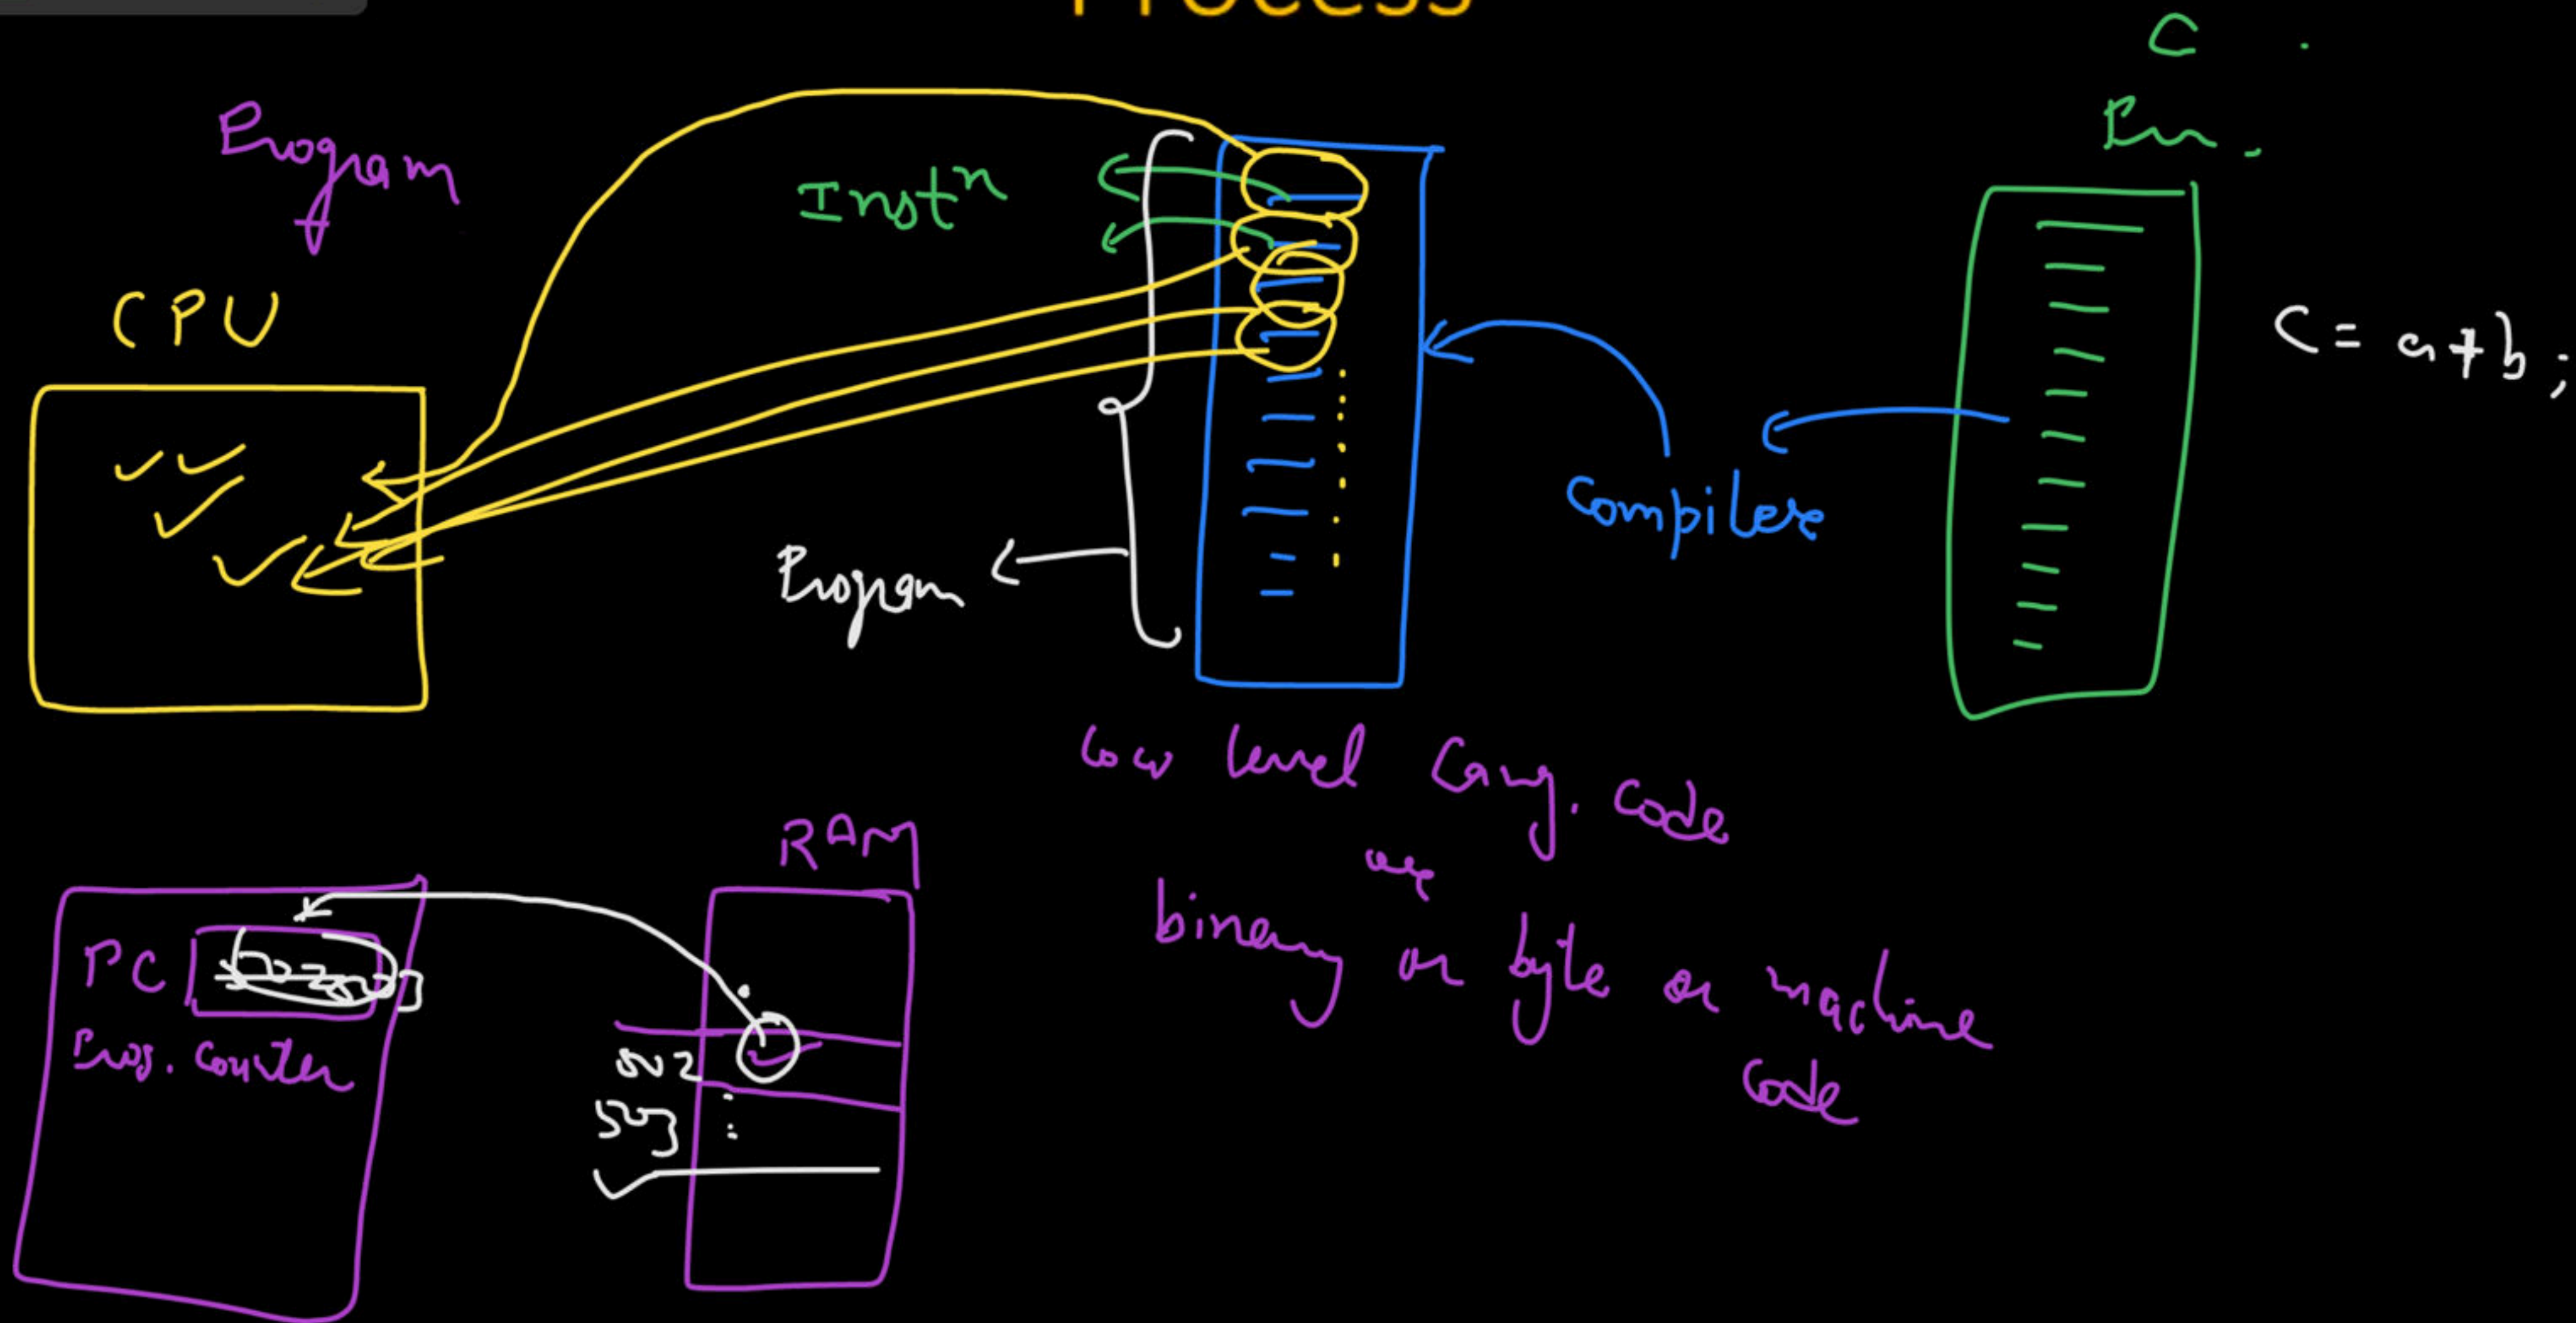 Process
C
Program
Instⁿ
CPU
C = a + b ;
Compiler
Program
Low level Lang. code
or
binary or byte or machine
code
RAM
PC
Prog. Counter
502
503